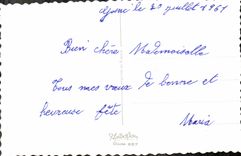 le 20 juillet 1961
Bien chère Mademoiselle
Tous mes vœux de bonne et
heureuse fête
Maria